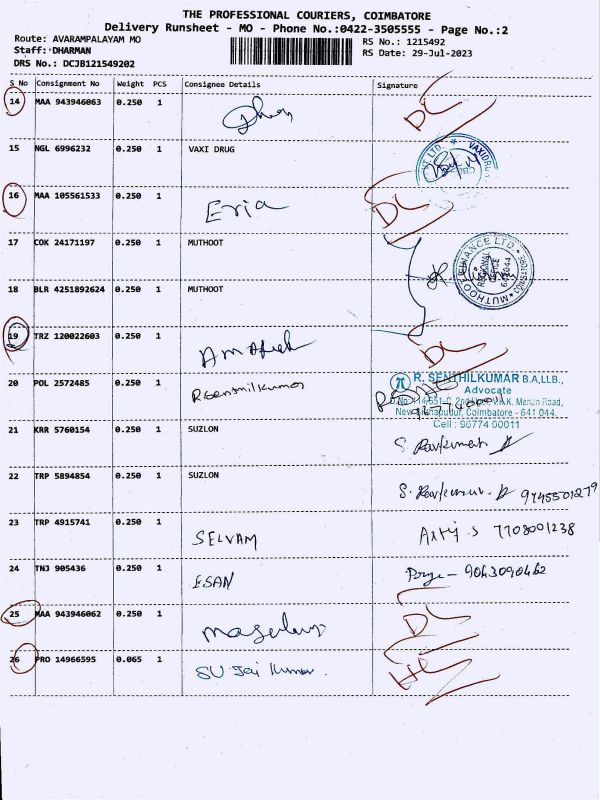 THE PROFESSIONAL COURIERS, COIMBATORE
Delivery Runsheet - MO - Phone No.:0422-3505555 - Page No.:2
Route: AVARAMPALAYAM MO
RS No.: 1215492
Staff: DHARMAN
RS Date: 29-Jul-2023
DRS No.: DCJB121549202
S No Consignment No Weight PCS Consignee Details Signature
14 MAA 943946063 0.250 1 DL
15 NGL 6996232 0.250 1 VAXI DRUG
16 MAA 105561533 0.250 1 Eria DL
17 COK 24171197 0.250 1 MUTHOOT
18 BLR 4251892624 0.250 1 MUTHOOT
19 TRZ 120022603 0.250 1 DL
20 POL 2572485 0.250 1 R.Senthilkumar
R. SENTHILKUMAR B.A,LLB.,
Advocate
Coimbatore - 641 044.
Cell : 96774 00011
21 KRR 5760154 0.250 1 SUZLON
22 TRP 5894854 0.250 1 SUZLON 9745501279
23 TRP 4915741 0.250 1 SELVAM 7708001238
24 TNJ 905436 0.250 1 ESAN 9043090462
25 MAA 943946062 0.250 1 DL
26 PRO 14966595 0.065 1 SU Jai Kumar